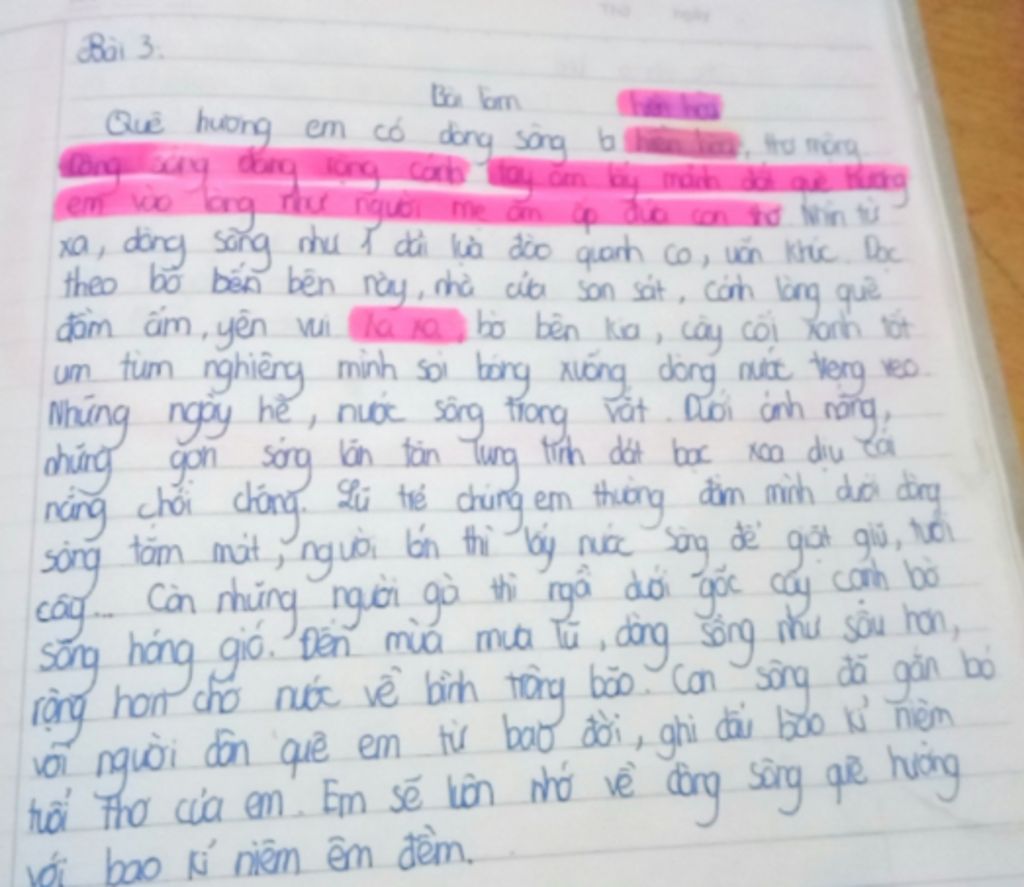 Bài 3:
Bài làm hiền hòa
Quê hương em có dòng sông hiền hòa, thơ mộng.
Dòng sông dang rộng cánh tay ôm lấy mảnh đất quê hương
em vào lòng như người mẹ ôm ấp đứa con thơ. Nhìn từ
xa, dòng sông như 1 dải lụa đào quanh co, uốn khúc. Dọc
theo bờ bên này, nhà cửa san sát, cảnh làng quê
đầm ấm, yên vui. Xa xa, bờ bên kia, cây cối xanh tốt
um tùm nghiêng mình soi bóng xuống dòng nước veo.
Những ngày hè, nước sông trong vắt. Dưới ánh nắng,
những gợn sóng lăn tăn lung linh dát bạc xoa dịu cái
nắng chói chang. Lũ trẻ chúng em thường đầm mình dưới dòng
sông tắm mát, người lớn thì lấy nước sông để giặt giũ, tưới
cây... Còn những người già thì ngả dưới gốc cây cạnh bờ
sông hóng gió. Đến mùa mưa lũ, dòng sông như sâu hơn,
rộng hơn chở nước về bình trông bão. Con sông đã gắn bó
với người dân quê em từ bao đời, ghi dấu bao kỉ niệm
tuổi thơ của em. Em sẽ luôn nhớ về dòng sông quê hương
với bao kí niệm êm đềm.